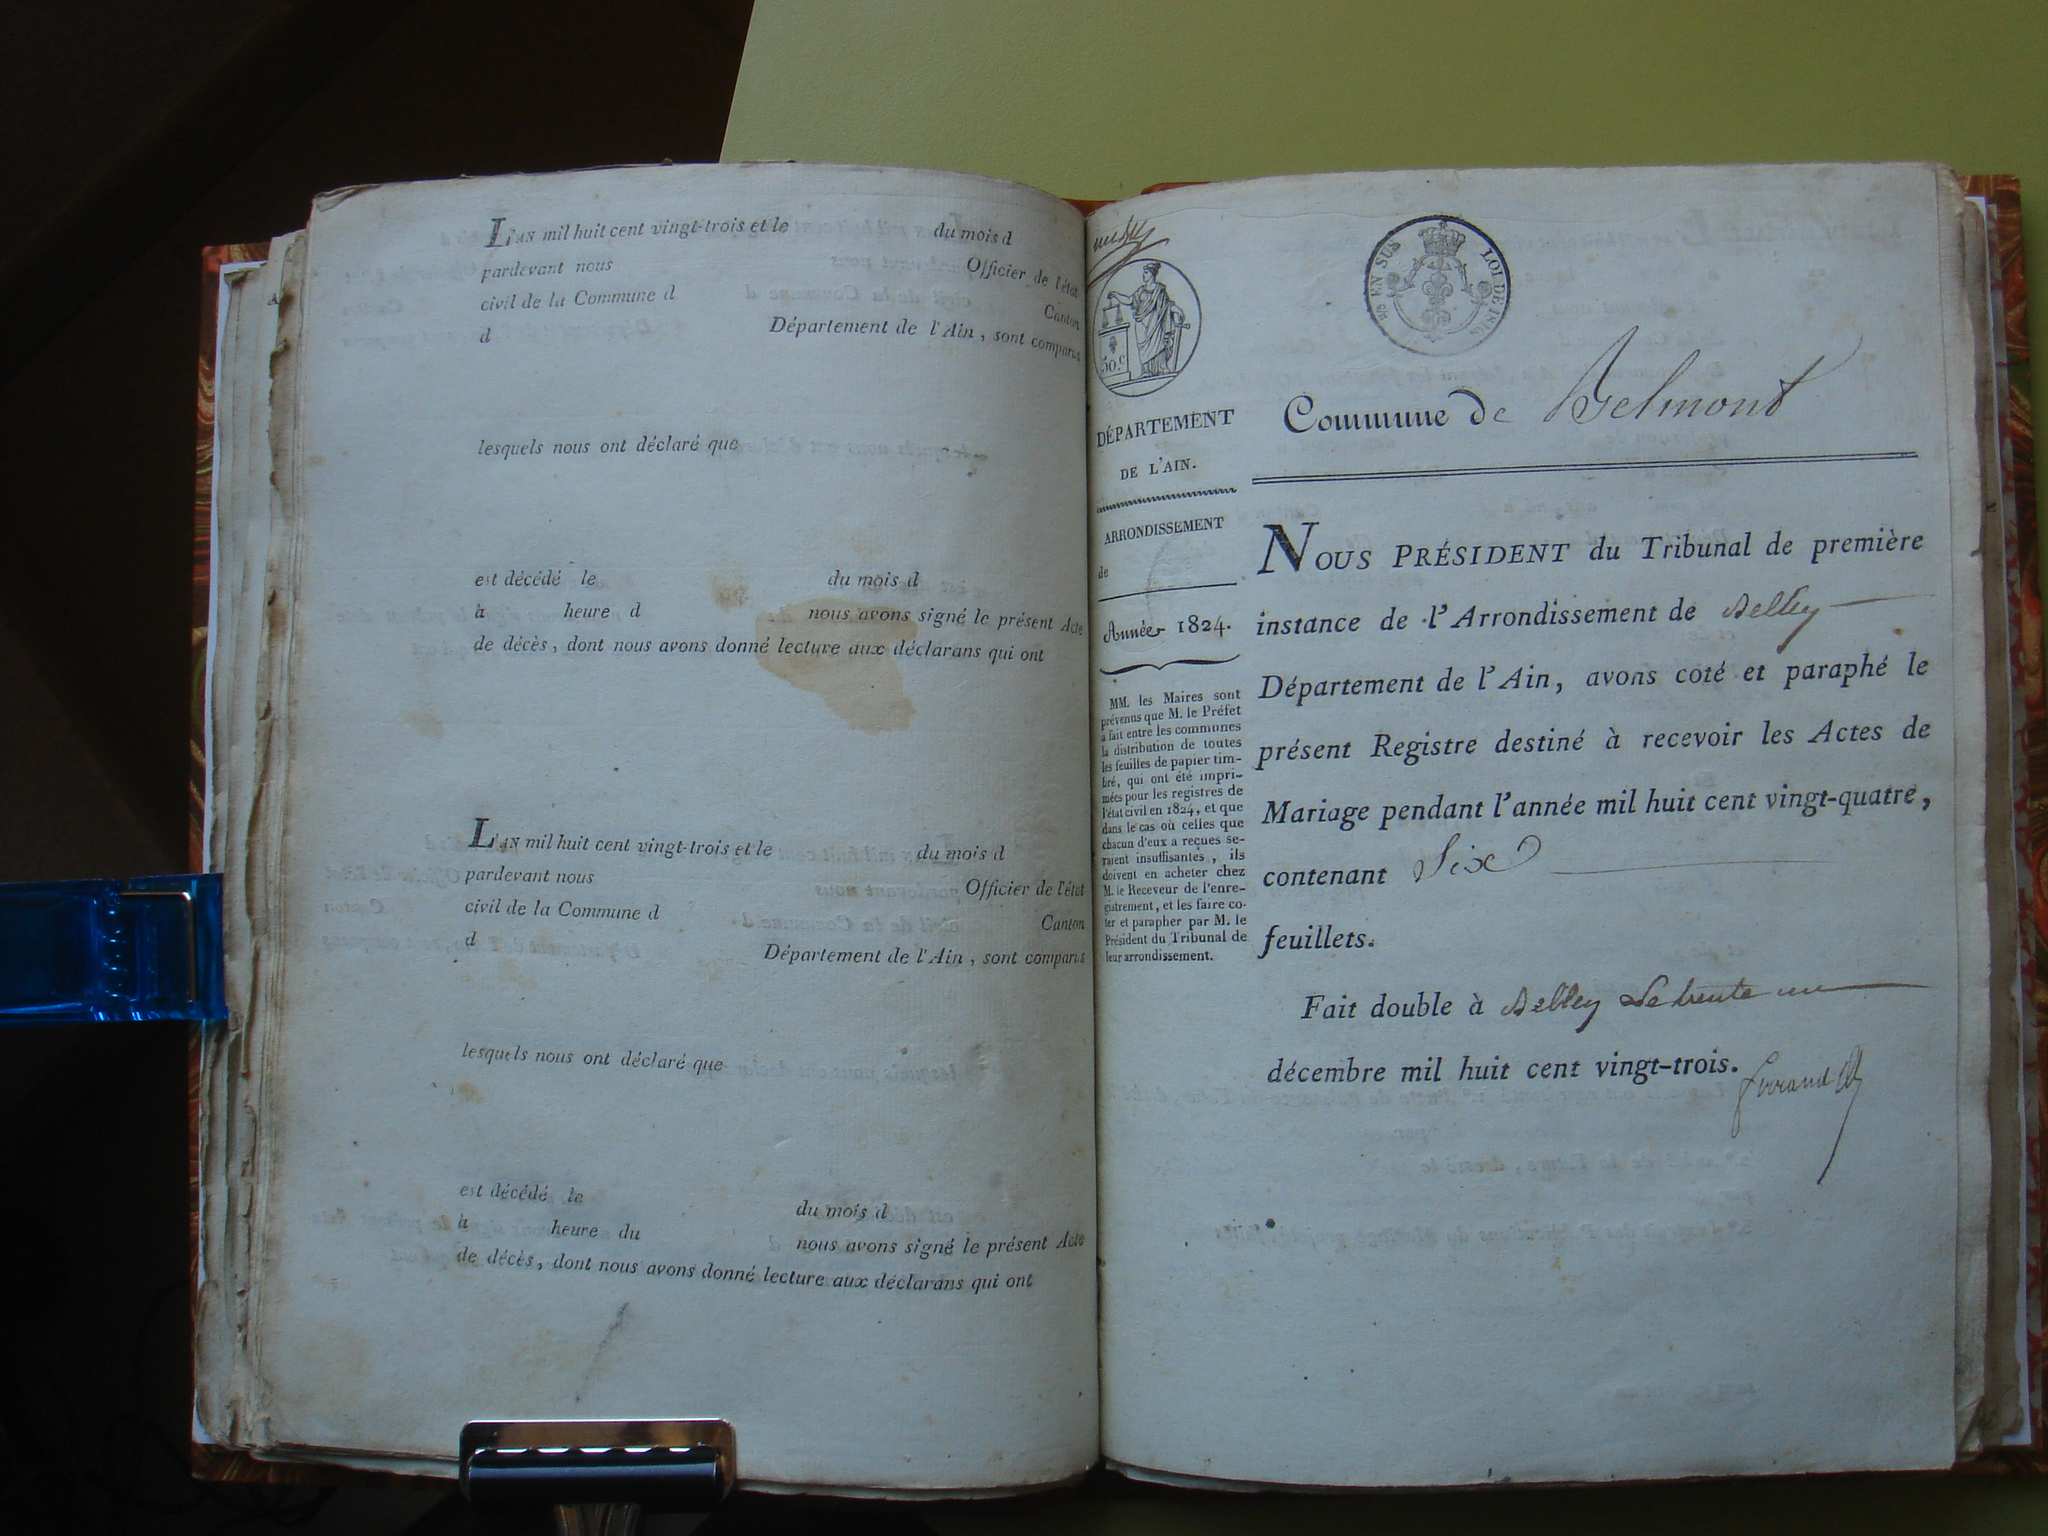 L'AN mil huit cent vingt-trois et le du mois d
pardevant nous Officier de l'état
civil de la Commune d Canton
d Département de l'Ain, sont comparus
lesquels nous ont déclaré que
est décédé le du mois d
à heure d nous avons signé le présent Acte
de décès, dont nous avons donné lecture aux déclarans qui ont
L'AN mil huit cent vingt-trois et le du mois d
pardevant nous Officier de l'état
civil de la Commune d Canton
d Département de l'Ain, sont comparus
lesquels nous ont déclaré que
est décédé le du mois d
à heure du nous avons signé le présent Acte
de décès, dont nous avons donné lecture aux déclarans qui ont
EN SUS LOI DE
50.c
DÉPARTEMENT
DE L'AIN.
ARRONDISSEMENT
de
Année 1824.
MM. les Maires sont
prévenus que M. le Préfet
a fait entre les communes
la distribution de toutes
les feuilles de papier tim-
bré, qui ont été impri-
mées pour les registres de
l'état civil en 1824, et que
dans le cas où celles que
chacun d'eux a reçues se-
raient insuffisantes, ils
doivent en acheter chez
M. le Receveur de l'enre-
gistrement, et les faire co-
ter et parapher par M. le
Président du Tribunal de
leur arrondissement.
Commune de Belmont
NOUS PRÉSIDENT du Tribunal de première
instance de l'Arrondissement de Belley
Département de l'Ain, avons coté et paraphé le
présent Registre destiné à recevoir les Actes de
Mariage pendant l'année mil huit cent vingt-quatre,
contenant Six
feuillets.
Fait double à Belley Le trente un
décembre mil huit cent vingt-trois.